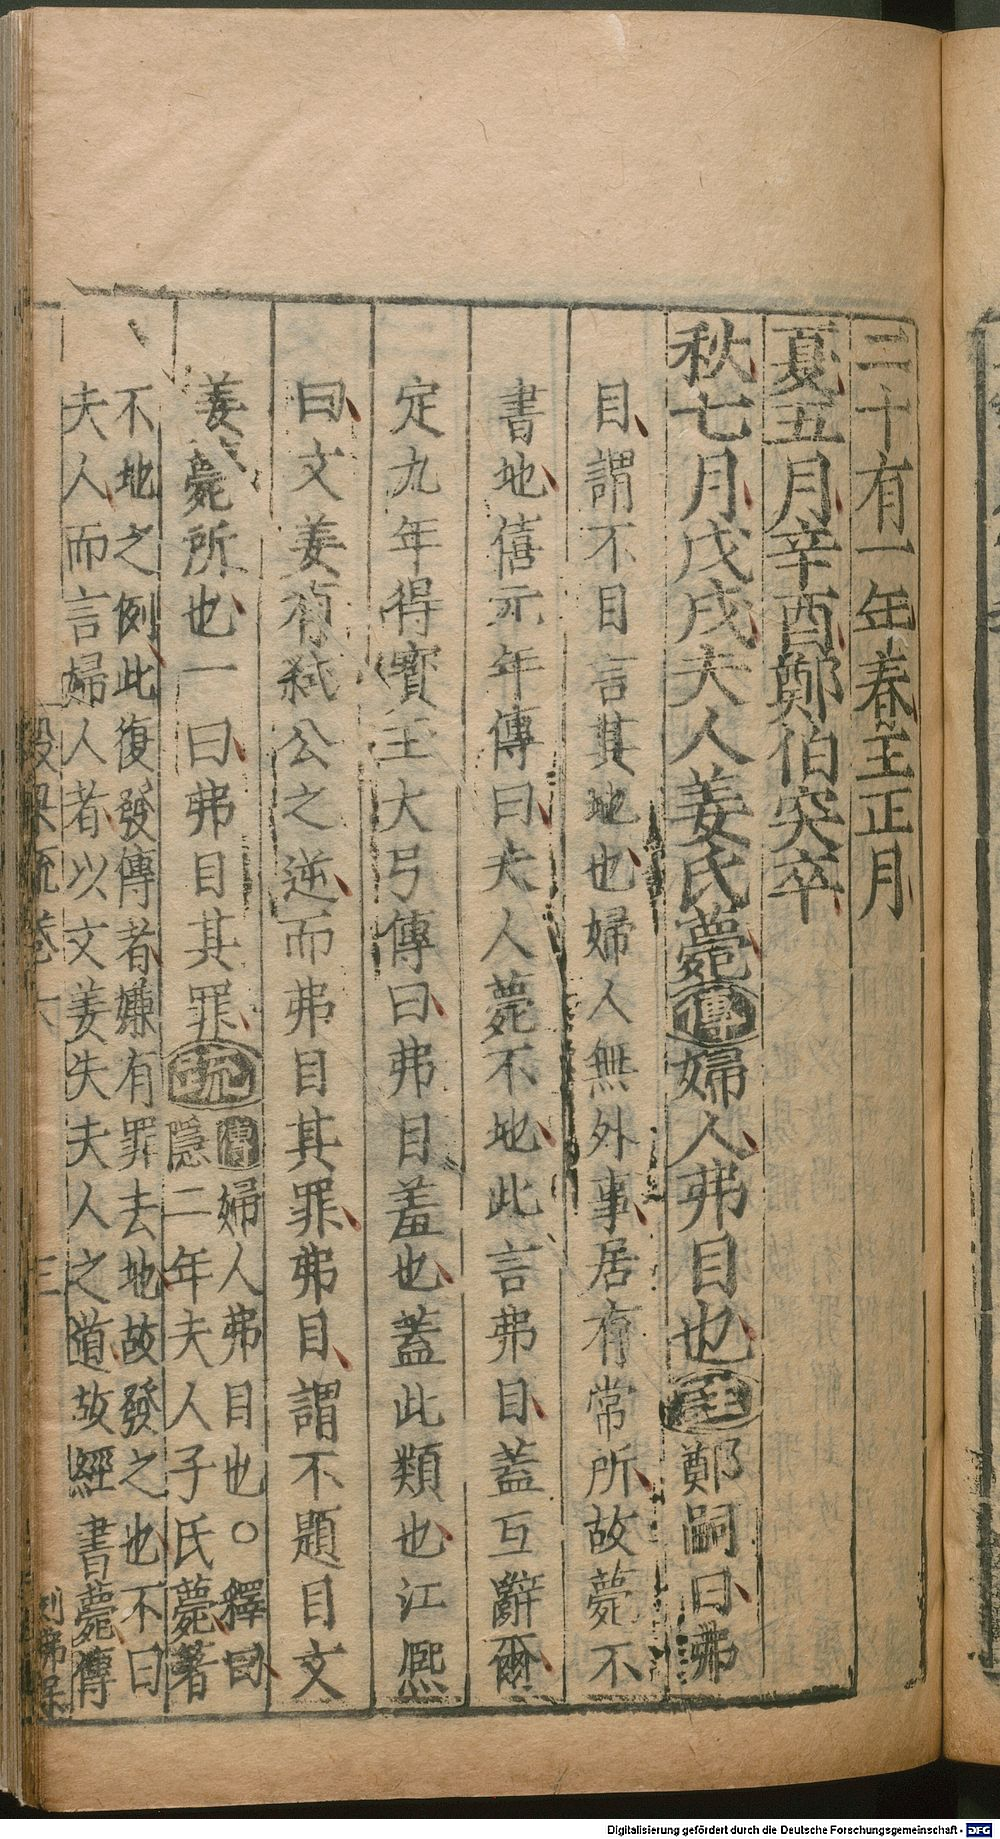 二十有一年春王正月
夏五月辛酉鄭伯突卒
秋七月戊戌夫人姜氏薨傳婦人弗目也註鄭嗣曰弗
目謂不目言其地也婦人無外事居有常所故薨不
書地僖元年傳曰夫人薨不地此言弗目蓋互辭爾
定九年得寳玉大弓傳曰弗目羞也蓋此類也江熈
曰文姜有弑公之逆而弗目其罪弗目謂不題目文
姜薨所也一曰弗目其罪疏
傳婦人弗目也○釋曰
隱二年夫人子氏薨著
不地之例此復發傳者嫌有罪去地故發之也不曰
夫人而言婦人者以文姜失夫人之道故經書薨傳
穀梁疏卷六
三
Digitalisierung gefördert durch die Deutsche Forschungsgemeinschaft - DFG